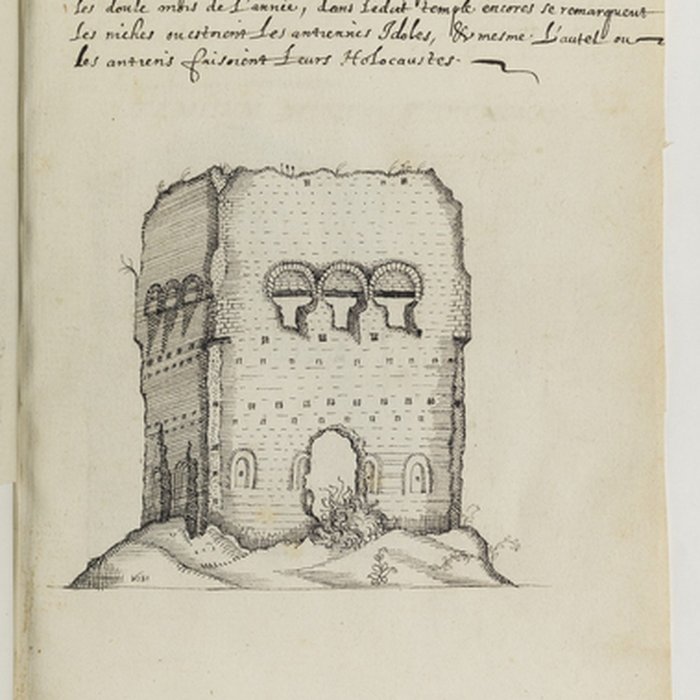 les douse mois de L'année, dans ledict temple encores se remarquent
les niches ou estoient Les antiennes Idoles, & mesme L'autel ou
les antiens faisoient Leurs Holocaustes.
1631